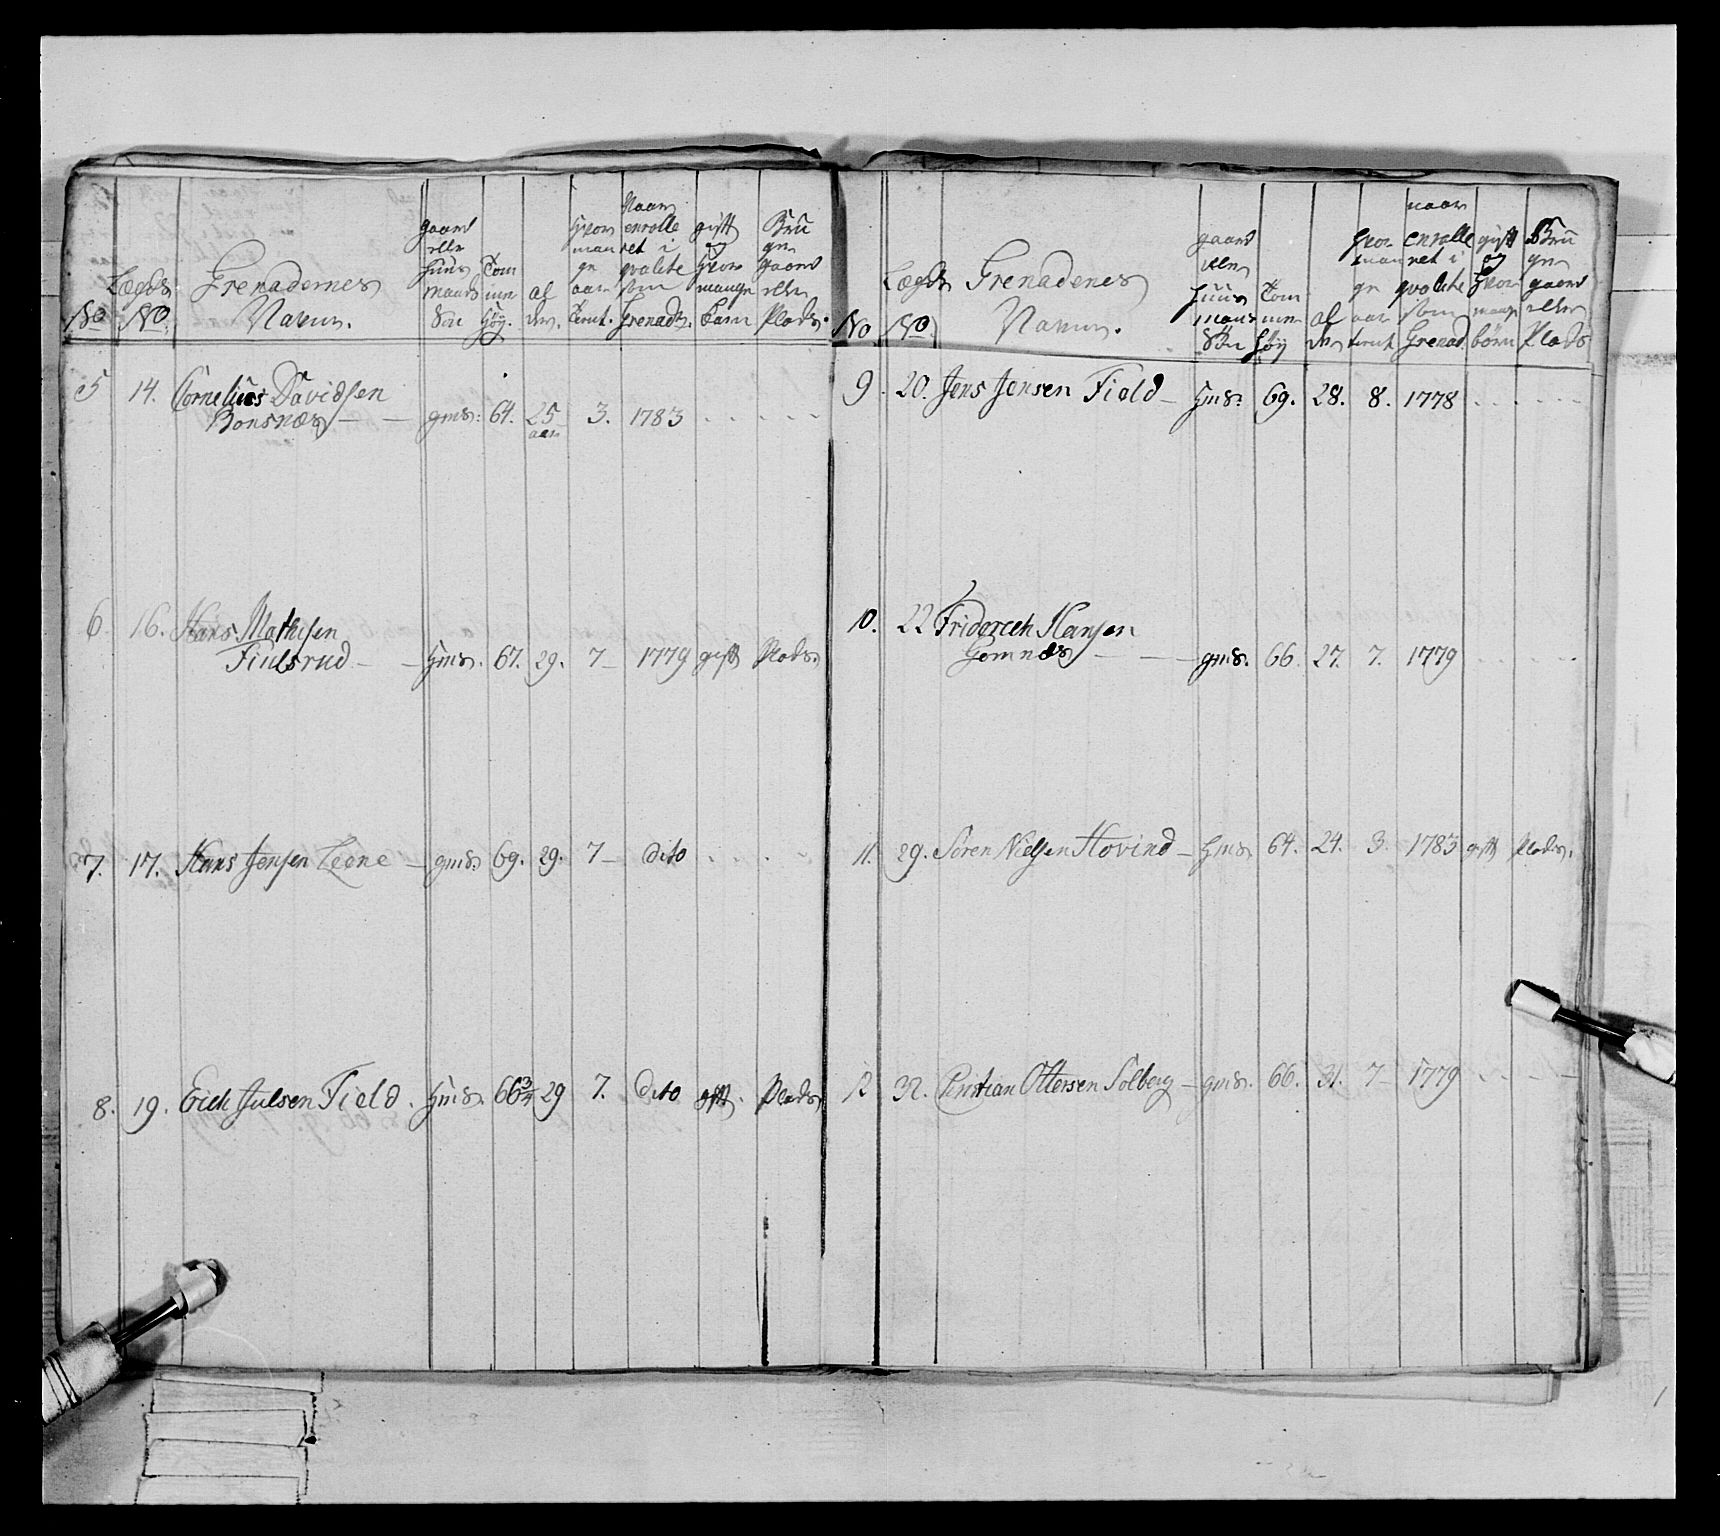 No
Lægds No
Grenadernes Navne.
gaard eller Huus mands Søn
Tom me Høy.
al der.
Hvor man ge aar tient.
Naar enrolle ret i qvalite som Grenadr.
gift og Hvor mange barn
Bru ger gaard eller Plads.
5 14. Cornelius Davidsen
Bonsnæs — — gms: 64. 25 aar 3. 1783 . . . .
6. 16. Hans Mathisen
Fiulsrud — — Hms. 67. 29. 7 — 1779 gift Plads.
7. 17. Hans Jensen Leene — gms. 69. 29. 7 — dito . . . .
8. 19. Erich Julsen Field . Hms. 66 3/4 29 7. dito gift. Plads
No
Lægds No.
Grenadenes Navne.
gaard eller Huus mans Søn
Tom me Høy
al der
Hvor man ge aar tient
naar enrolle ret i qvalite som Grenad.
gift og Hvor mange børn
Bru ger gaard eller Plads
9. 20. Jens Jensen Field — Hms. 69. 28. 8. 1778 . . . .
10. 22 Friderich Hansen
Gomnæs — — — gms. 66. 27. 7. 1779 . . . .
11. 29. Søren Nielsen Hovind — Hms. 64. 24. 3. 1783 gift Plads.
12 32. Christian Ottersen Solberg — gms. 66. 31. 7 1779 . . . .